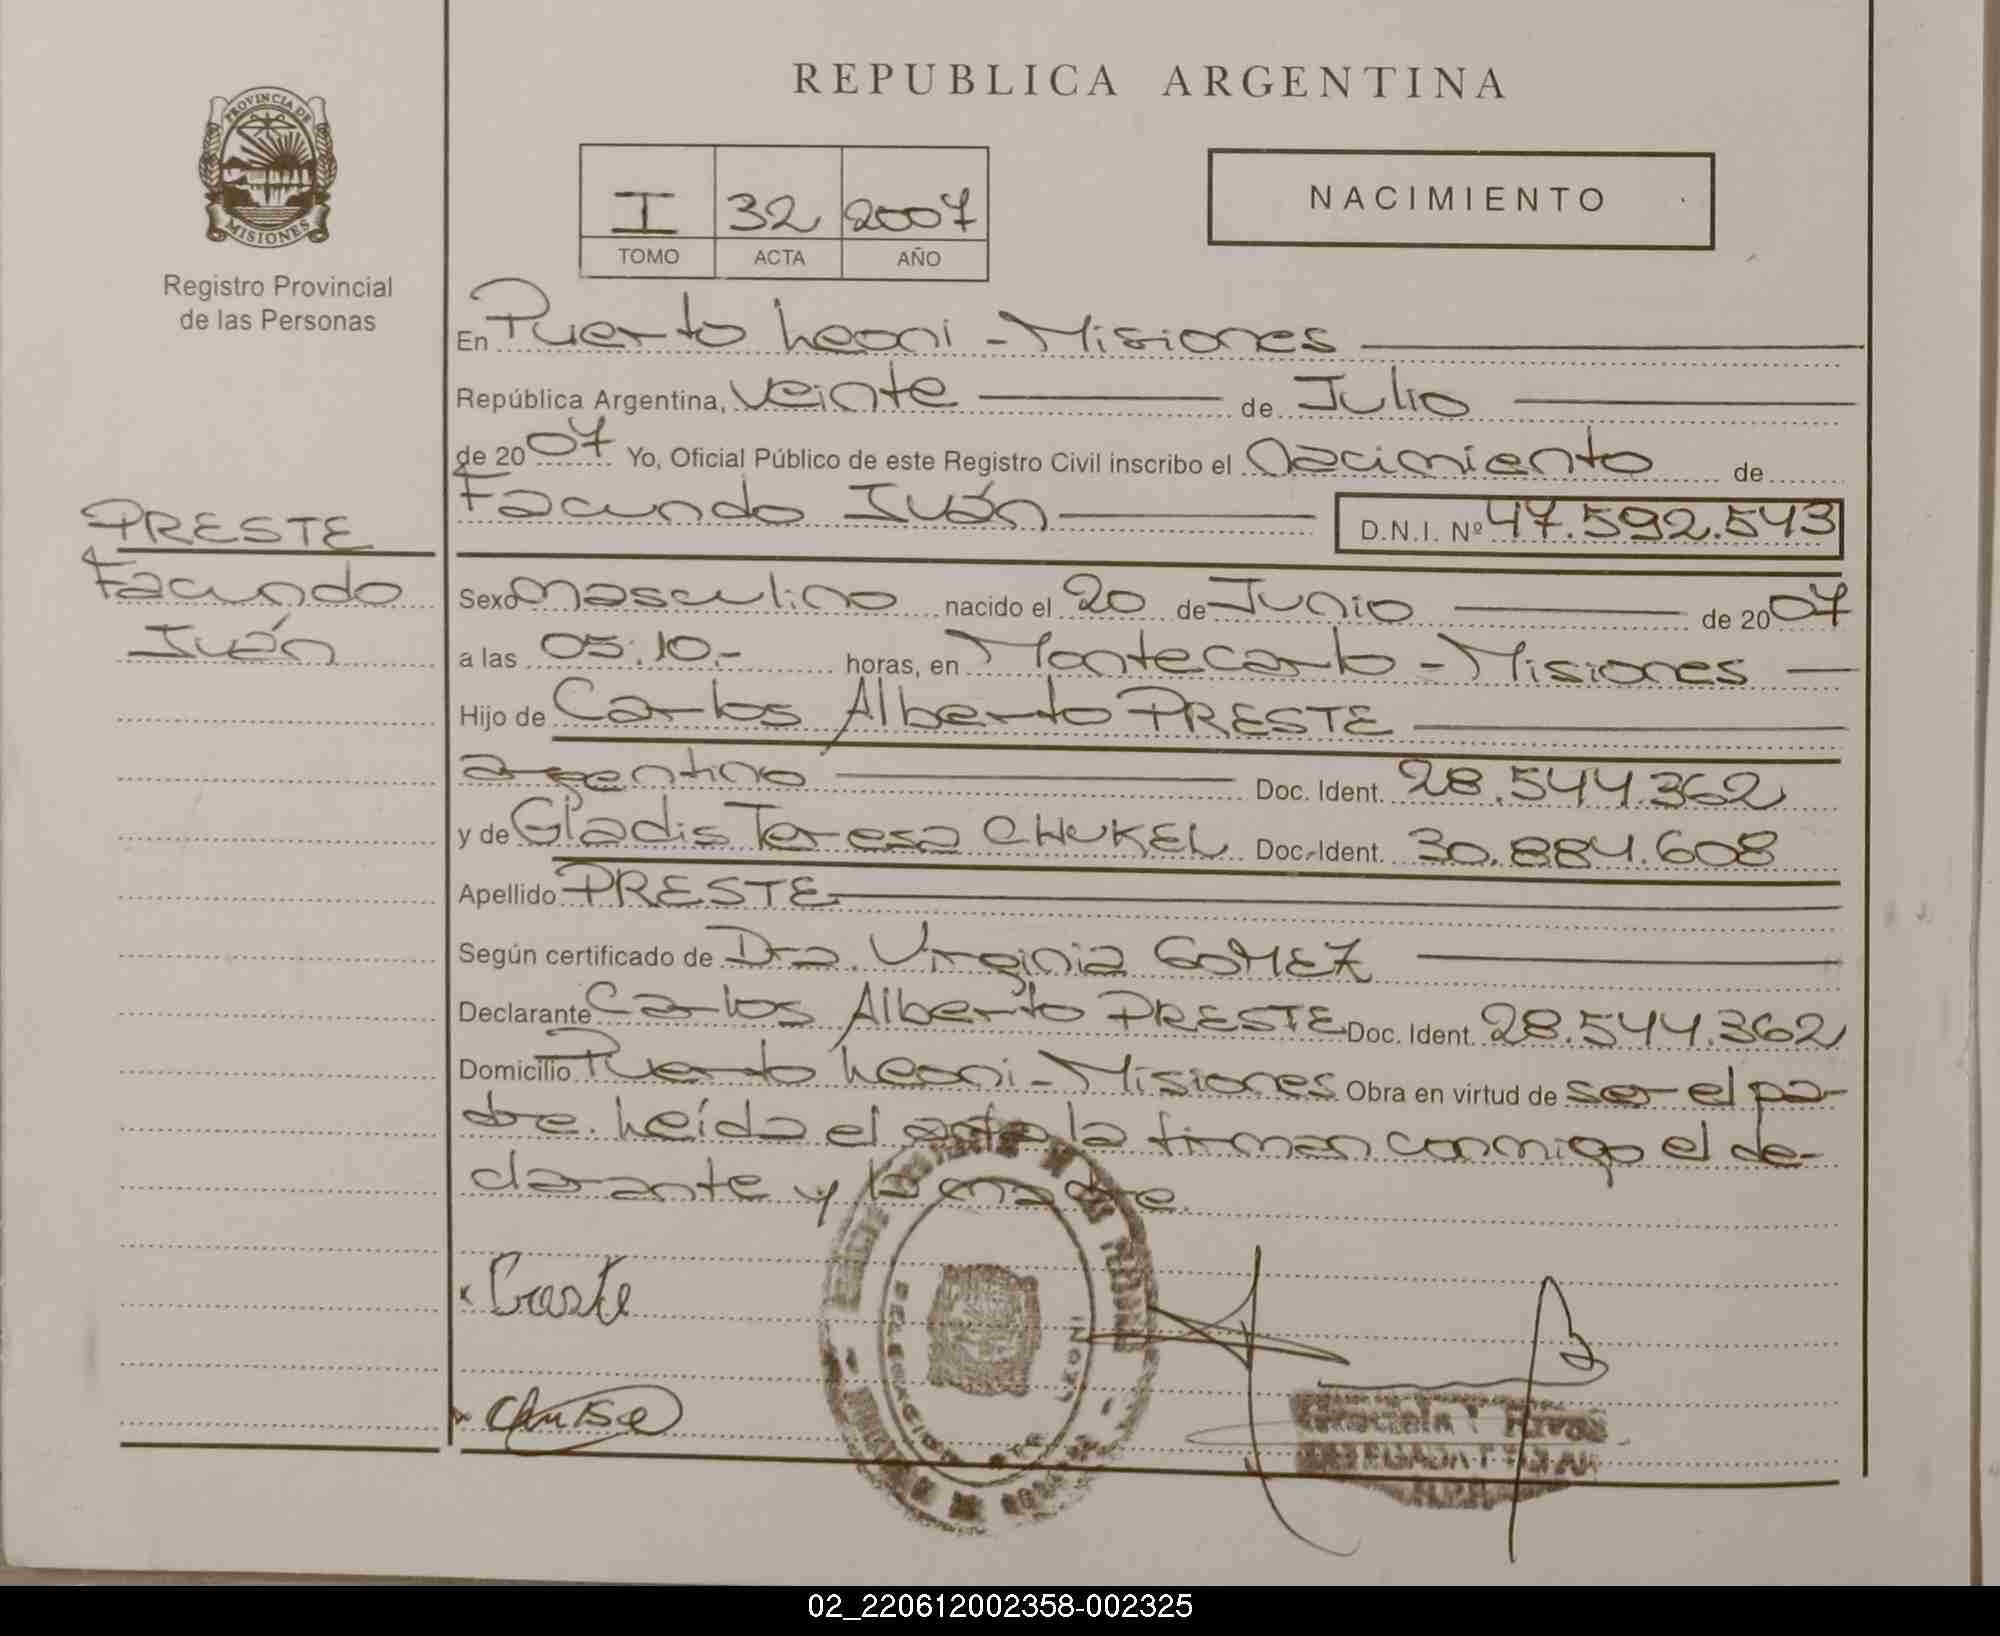 REPUBLICA ARGENTINA
PROVINCIA DE
MISIONES
Registro Provincial
de las Personas
I 32 2007
TOMO ACTA AÑO
NACIMIENTO
En Puerto Leoni - Misiones
República Argentina, veinte de Julio
de 2007 Yo, Oficial Público de este Registro Civil inscribo el Nacimiento de
Facundo Iván D.N.I. Nº 47.592.543
PRESTE
Facundo
Iván
Sexo Masculino nacido el 20 de Junio de 2007
a las 05:10.- horas, en Montecarlo - Misiones
Hijo de Carlos Alberto PRESTE
argentino Doc. Ident. 28.544.362
y de Gladis Teresa CHUKEL Doc. Ident. 30.884.608
Apellido PRESTE
Según certificado de Dra. Virginia GOMEZ
Declarante Carlos Alberto PRESTE Doc. Ident. 28.544.362
Domicilio Puerto Leoni - Misiones Obra en virtud de ser el pa-
dre. Leída el acta la firman conmigo el de-
clarante y la madre.
DELEGACION LEONI
02_220612002358-002325